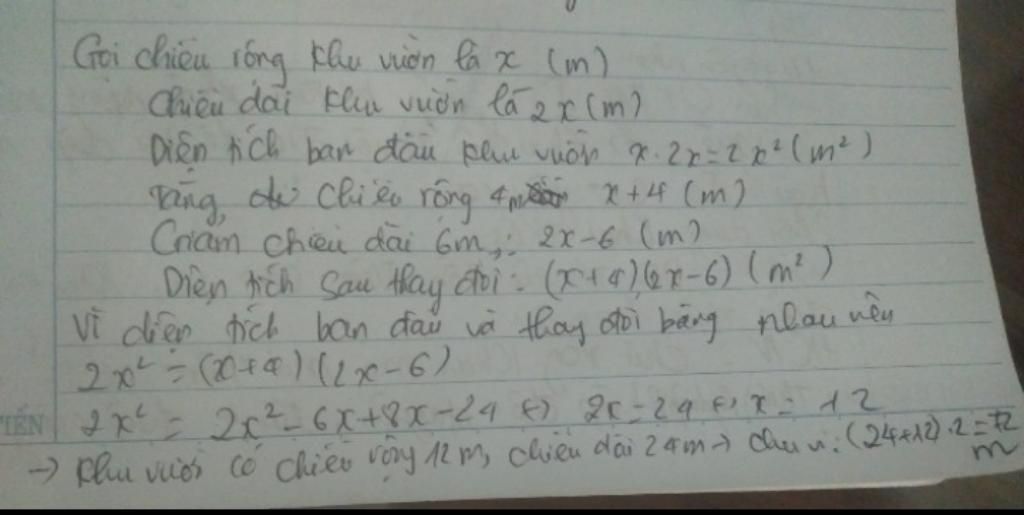 Gọi chiều rộng khu vườn là x (m)
Chiều dài khu vườn là 2x (m)
Diện tích ban đầu khu vườn x.2x=2x² (m²)
Tăng chiều rộng 4m x+4 (m)
Giảm chiều dài 6m,: 2x-6 (m)
Diện tích sau thay đổi: (x+4)(2x-6) (m²)
Vì diện tích ban đầu và thay đổi bằng nhau nên
2x² = (x+4) (2x-6)
TIẾN 2x² = 2x²-6x+8x-24 ↔ 2x=24 ↔ x = 12
→ Khu vườn có chiều rộng 12m, chiều dài 24m → chu vi: (24+12).2=72
m